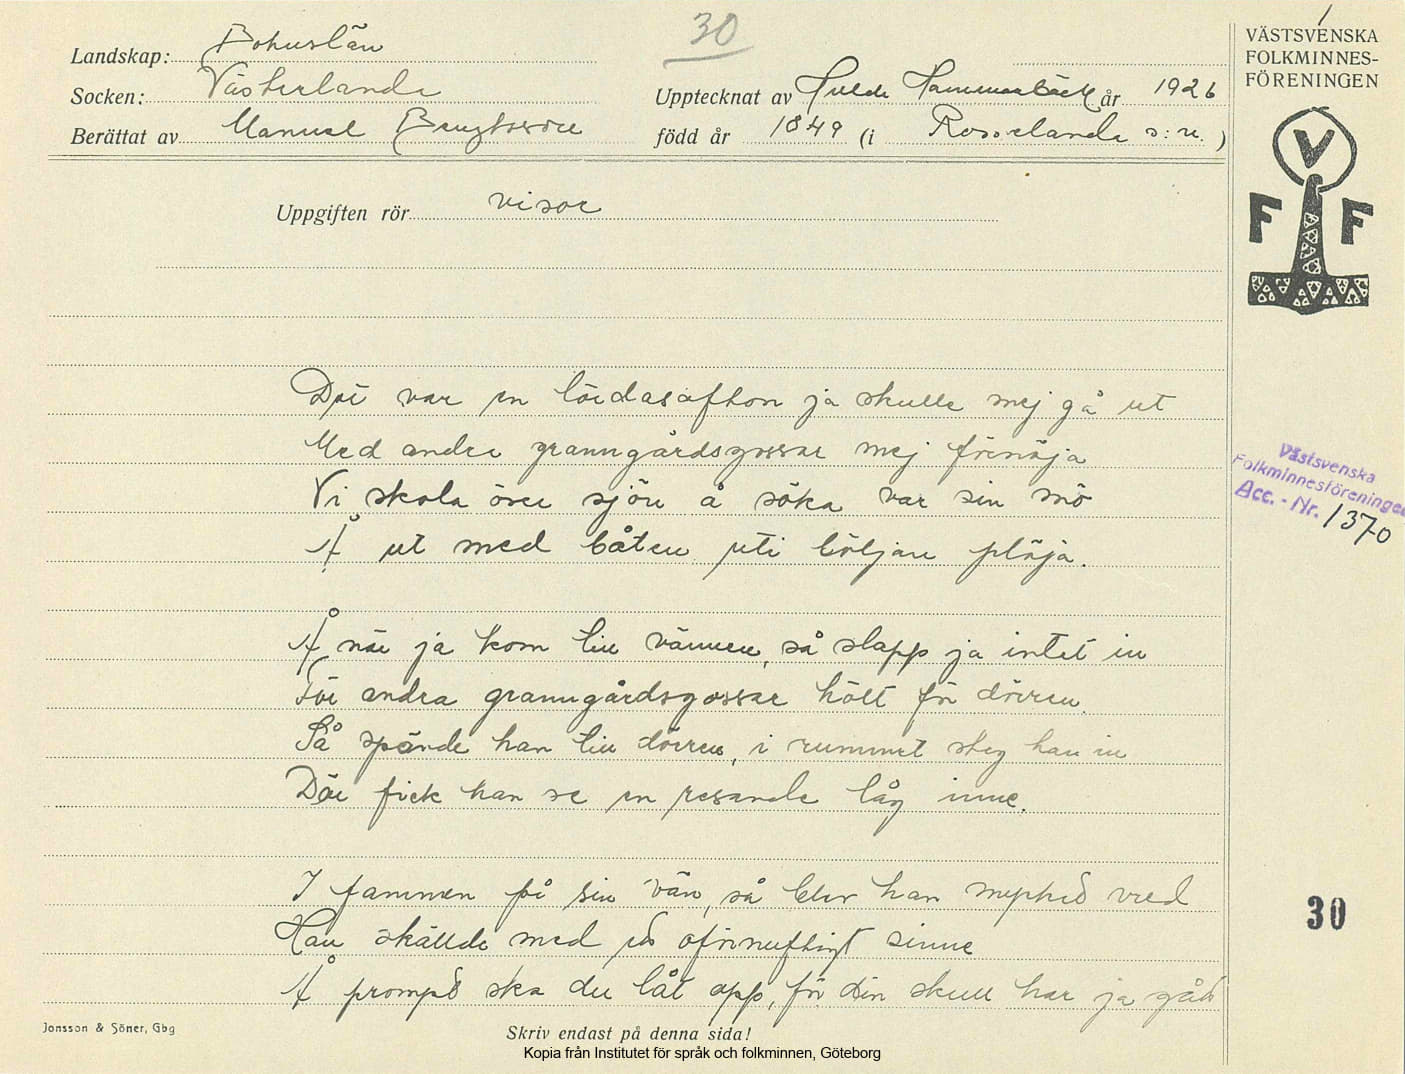 30
VÄSTSVENSKA
FOLKMINNES-
FÖRENINGEN
Landskap: Bohuslän
Socken: Västerlanda
Upptecknat av Hulda Hammarbäck år 1926
Berättat av Manuel Bengtsson
född år 1849 (i Rosselanda s:n. )
Uppgiften rör visor
V
F F
Dät var en lördasafton ja skulle mej gå ut
Med andra granngårdsgossar mej förnöja
Vi skola över sjön å söka var sin mö
Å ut med båten uti böljan plöja.
Å när ja kom till vännen, så slapp ja intet in
För andra granngårdsgossar höll för dörren.
Så spände han till dörren, i rummet steg han in
Där fick han se en resande låg inne.
I famnen på sin vän, så blev han mycket vred
Han skällde med ett oförnuftigt sinne
Å prompt ska du låt opp, för din skull har ja gått
Västsvenska
Folkminnesföreningen
Acc. - Nr. 1370
30
Jonsson & Söner, Gbg
Skriv endast på denna sida!
Kopia från Institutet för språk och folkminnen, Göteborg